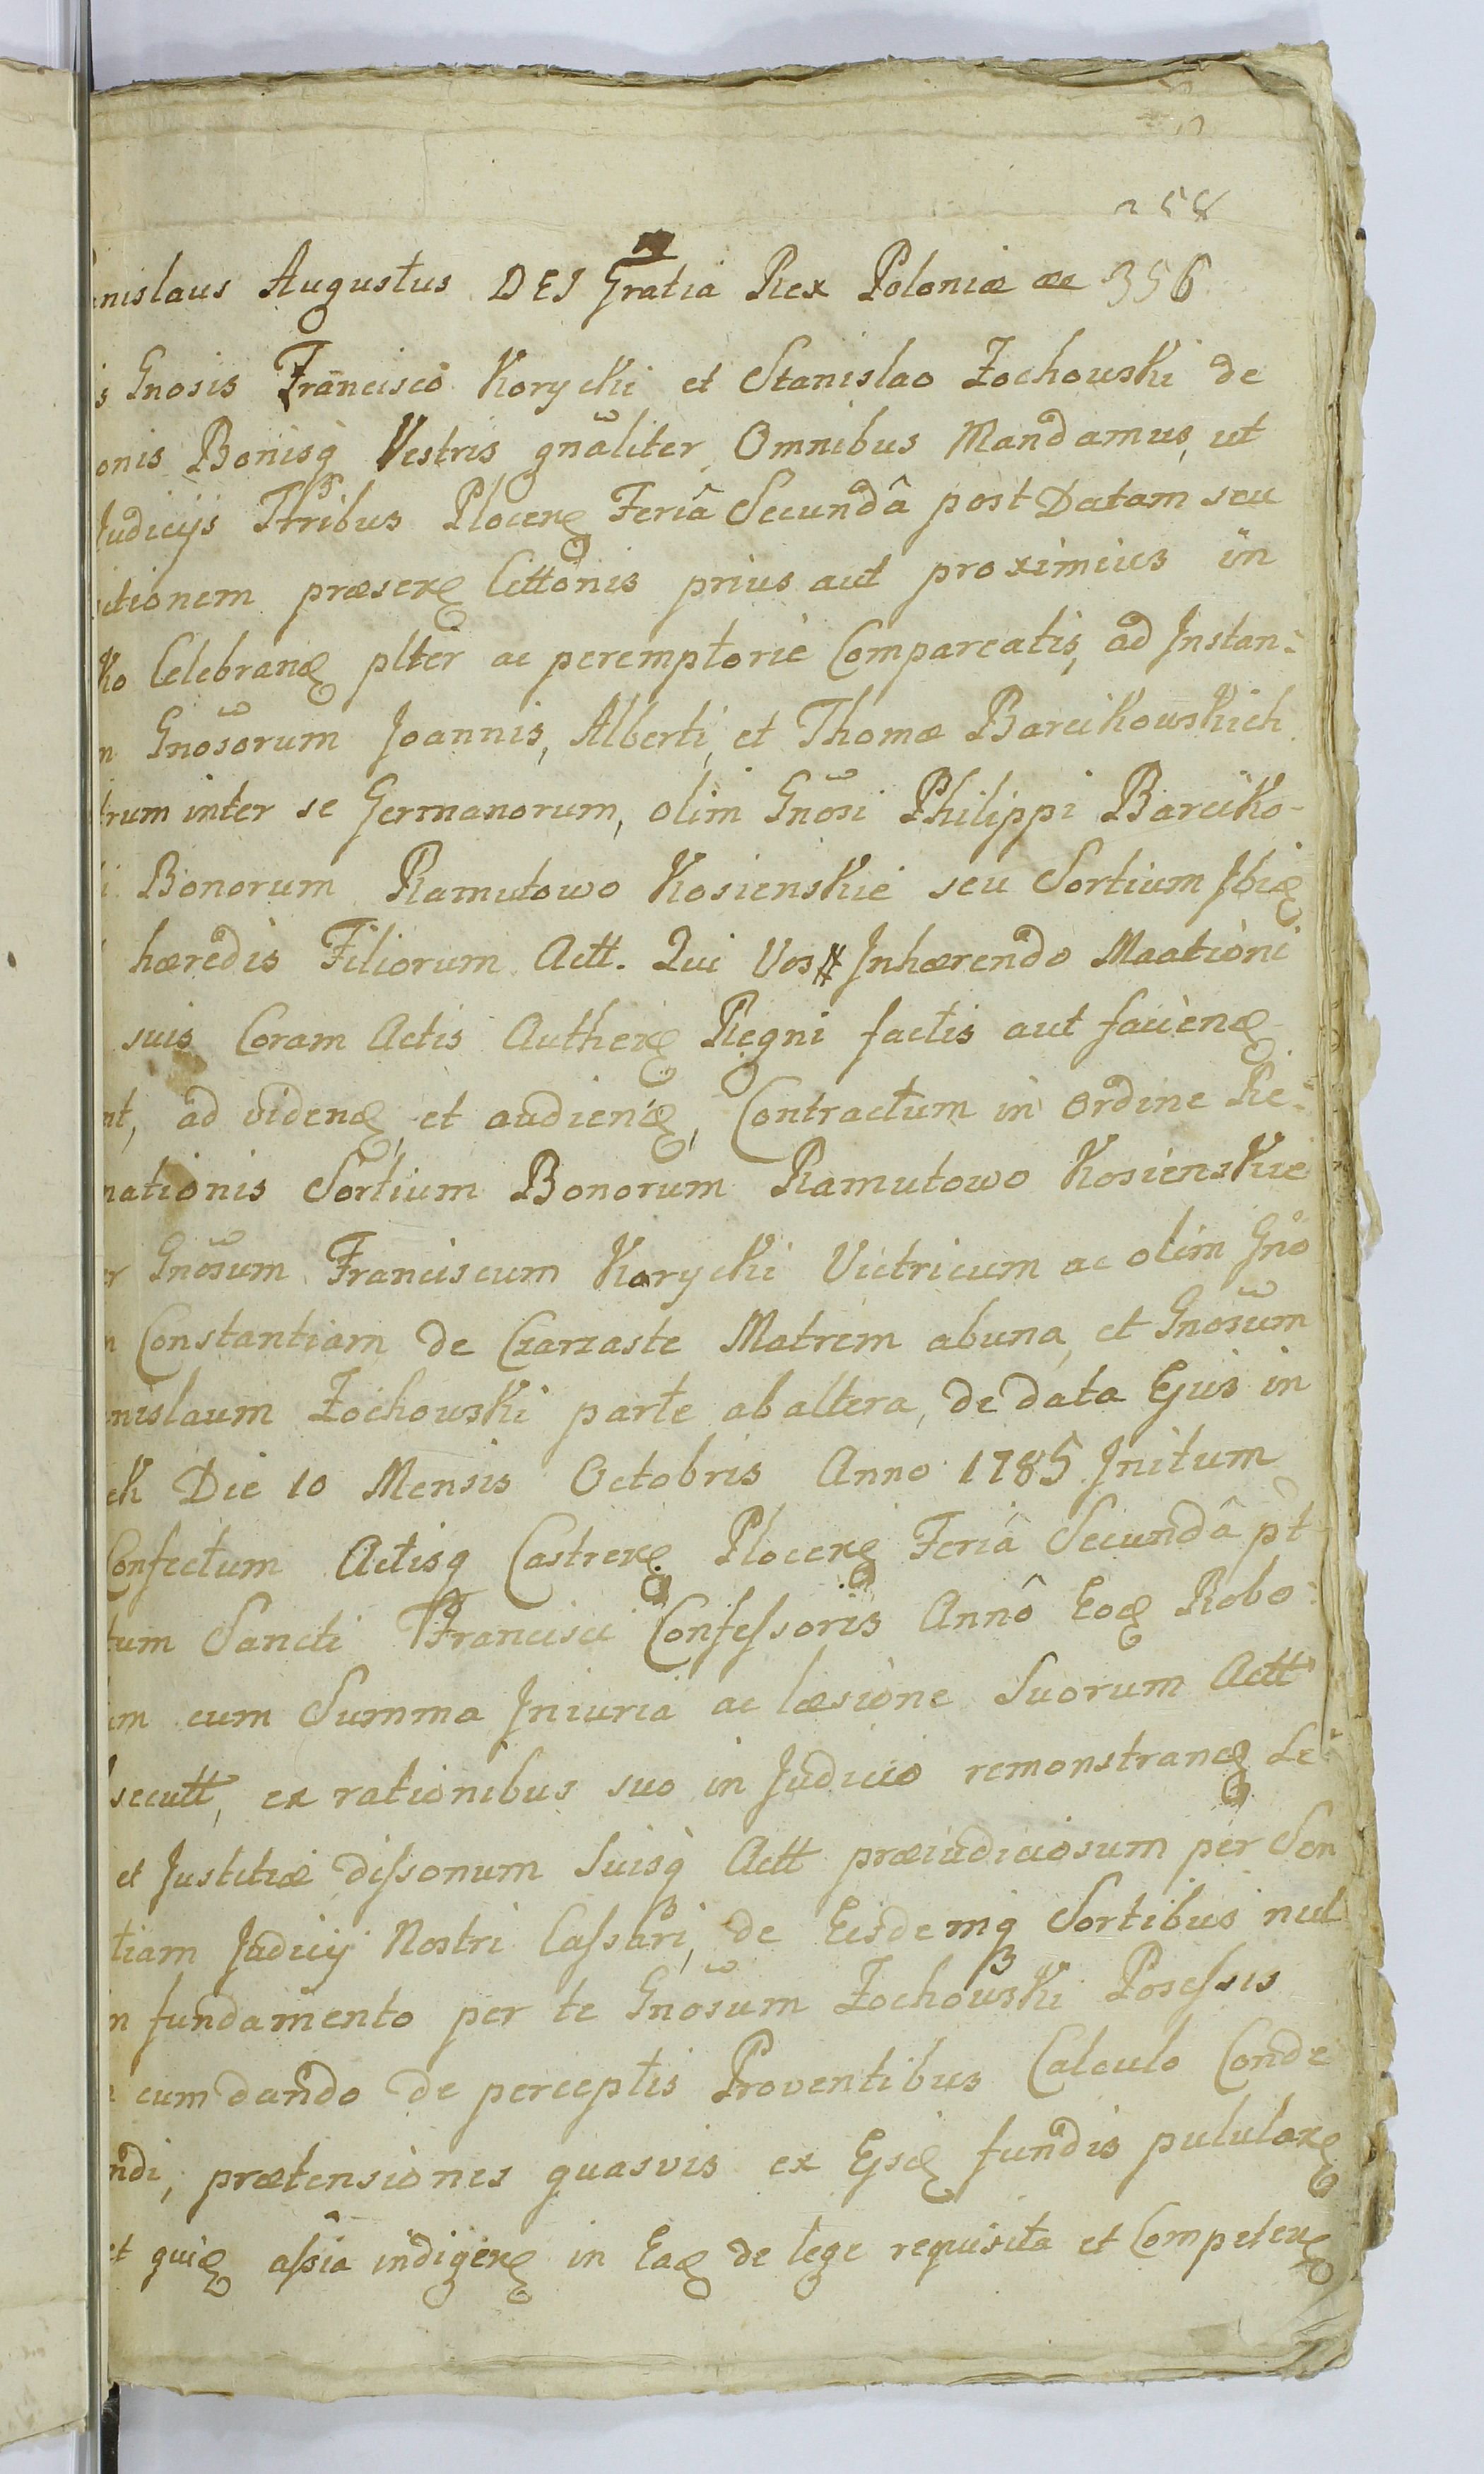 258
nislaus Augustus DEI Gratia Rex Poloniæ 356
s Gnosis Francisco Korycki et Stanislao Żochowski de
onis Bonisq Vestris gnãliter Omnibus Mandamus, ut
Judicijs Ttribus Plocen Feriâ Secundâ post Datam seu
itionem præsen Cittonis prius aut proximius in
ko Celebrand plter ac peremptorie Compareatis, ad Instan-
m Gnõsorum Joannis, Alberti, et Thomæ Barcikowskich
trum inter se Germanorum, olim Gnõsi Philippi Barciko-
i Bonorum Ramutowo Kosienskie seu Sortium Ibid
hæredis Filiorum Actt. Qui Vos Inhærendo Maationi
suis Coram Actis Authen Regni factis aut faciend
nt, ad vidend, et audiend, Contractum in Ordine Re-
nationis Sortium Bonorum Ramutowo Kosienskie
er Gnõsum Franciscum Korycki Victricum ac olim Gnõ
m Constantiam de Czarzaste Matrem abuna, et Gnõsum
nislaum Żochowski parte ab altera, de data Ejus in
ck Die 10 Mensis Octobris Anno 1785 Initum
Confectum Actisq Castren Plocen Feriâ Secundâ pt
tum Sancti Francisci Confessoris Annô Eod Robo-
m cum Summa Iniuria ac læsione Suorum Actt
secutt, ex rationibus suo in Judicio remonstrand Le-
et Justitiæ dissonum Suisq Actt præiudiciosum per Sen
tiam Judicij Nostri Cassari, de Eisdemq Sortibus nul
m fundamento per te Gnõsum Żochowski Posessis
cum dando de perceptis Proventibus Calculo Conde
ndi, prætensiones quasvis ex Ejsd fundis pululan
et quid assia indigen in Ead de lege requisita et Competen